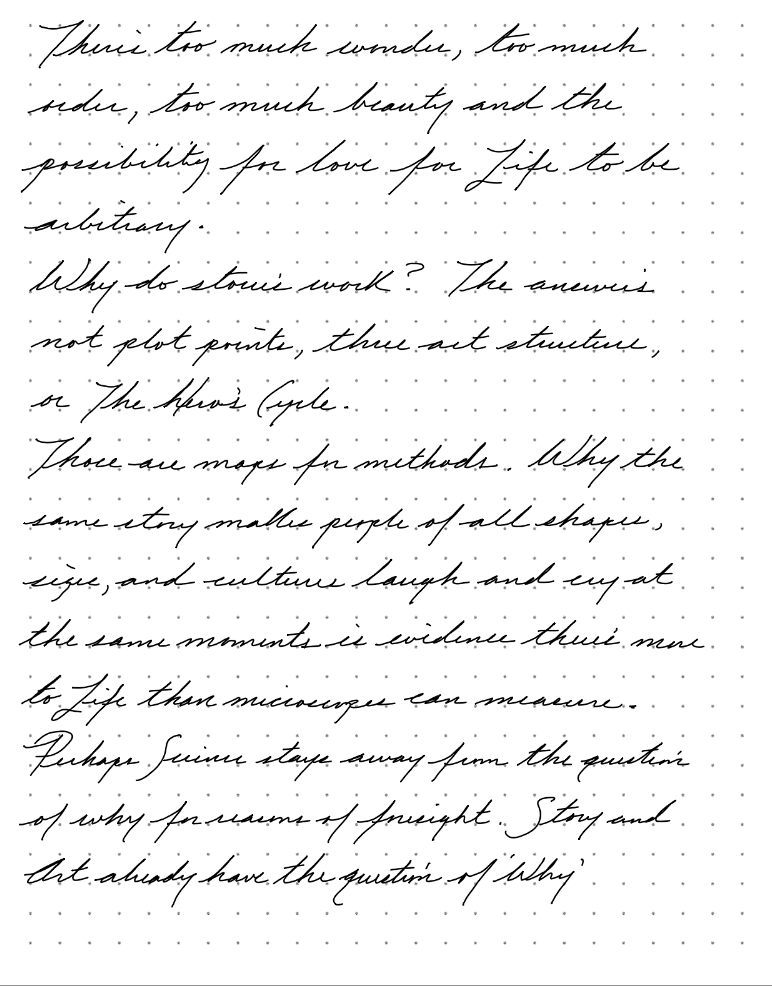 There's too much wonder, too much
order, too much beauty and the
possibility for love for Life to be
arbitrary.
Why do stories work? The answer is
not plot points, three act structure,
or The Hero's Cycle.
Those are maps for methods. Why the
same story makes people of all shapes,
sizes, and cultures laugh and cry at
the same moments is evidence there's more
to Life than microscopes can measure.
Perhaps Science stays away from the question
of why for reasons of foresight. Story and
Art already have the question of 'Why'